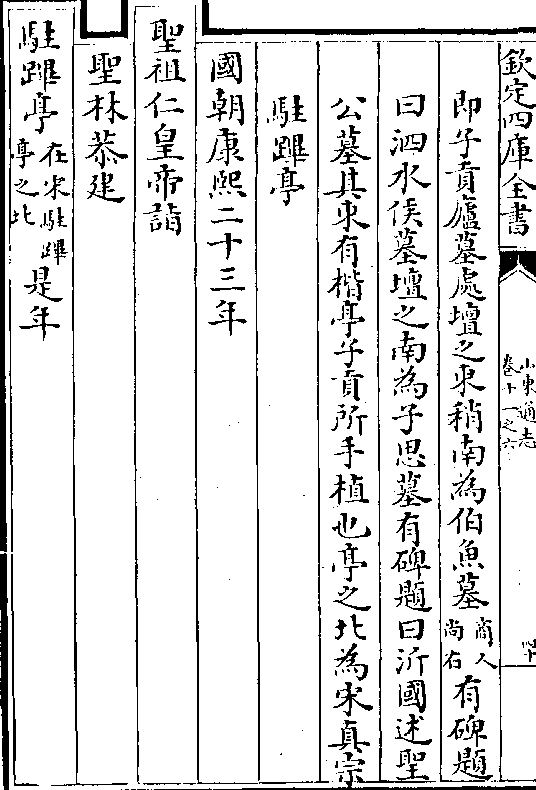 欽定四庫全書
山東通志
卷十一之六
即子貢廬墓處壇之東稍南為伯魚墓商人尚右有碑題
曰泗水侯墓壇之南為子思墓有碑題曰沂國述聖
公墓其東有楷亭子貢所手植也亭之北為宋真宗
駐蹕亭
國朝康熙二十三年
聖祖仁皇帝詣
聖林恭建
駐蹕亭在宋駐蹕亭之北是年